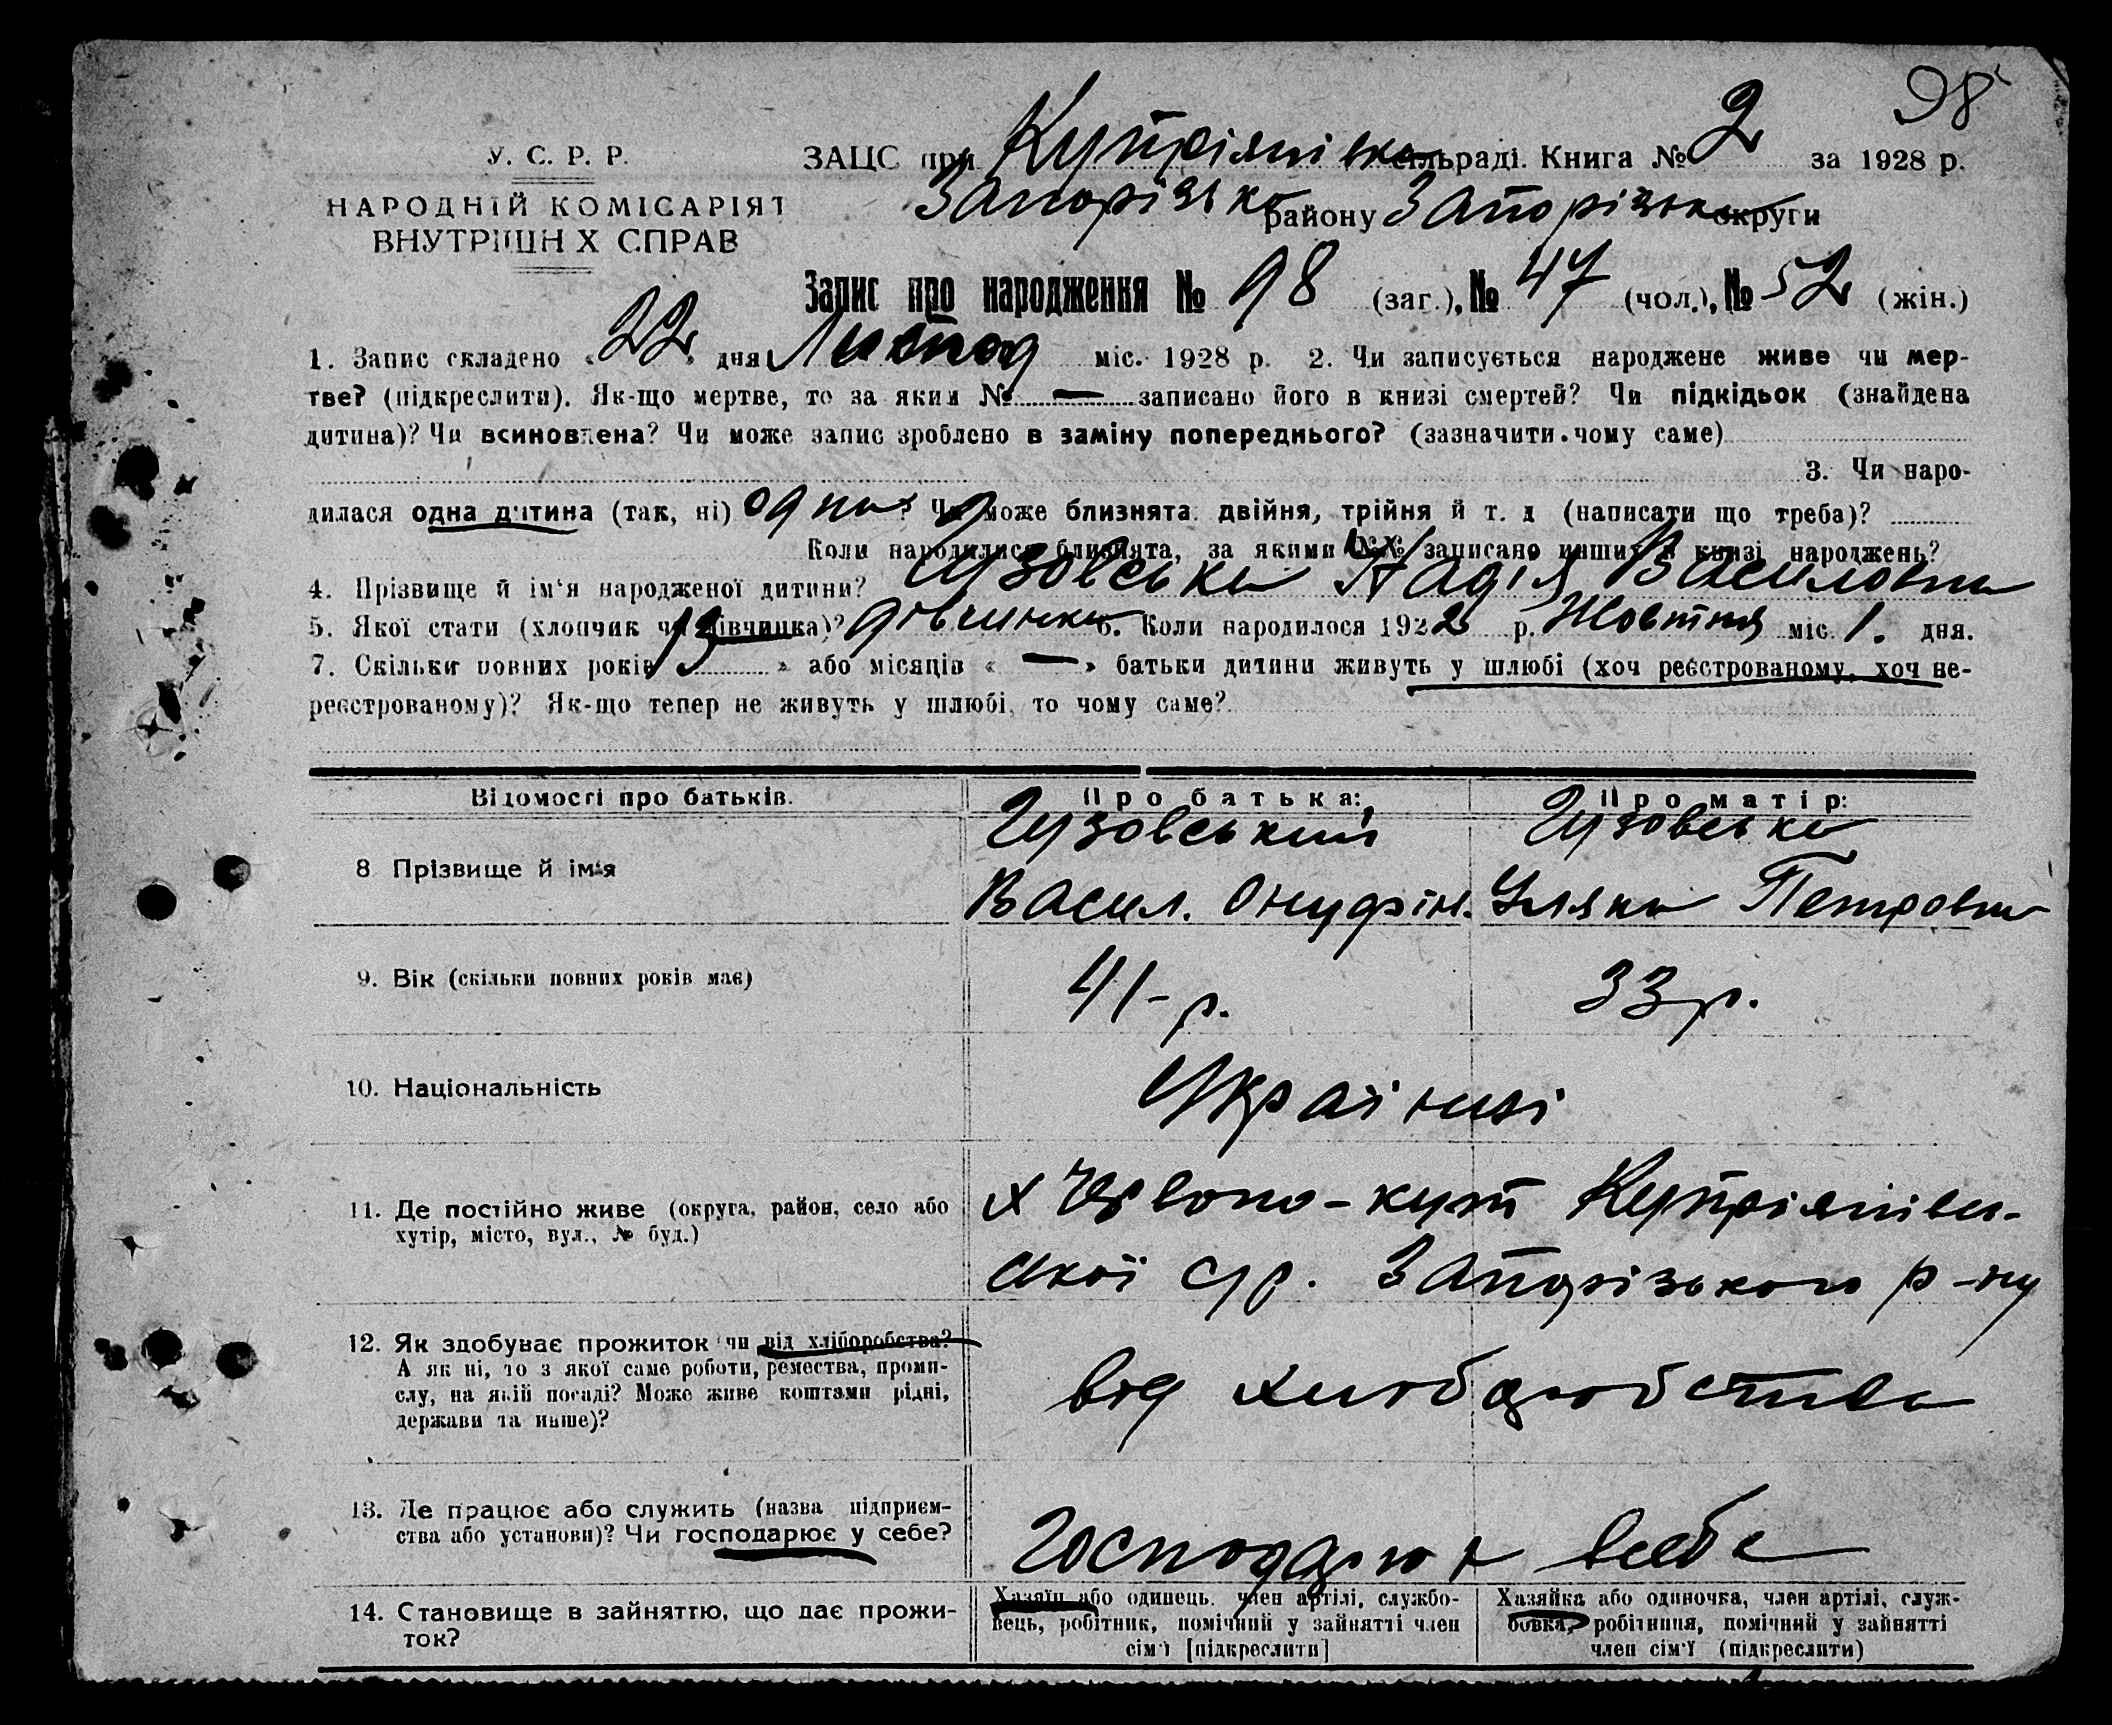 98
У. С. Р. Р.
НАРОДНІЙ КОМІСАРІЯТ
ВНУТРІШН Х СПРАВ
ЗАЦС при Купріянівка сільраді. Книга № 2 за 1928 р.
Запорізько району Запорізька округи
Запис про народження № 98 (заг.), № 47 (чол.), № 52 (жін.)
1. Запис складено « 22 » дня Листопад міс. 1928 р. 2. Чи записується народжене живе чи мер-
тве? (підкреслити). Як-що мертве, то за яким № — записано його в книзі смертей? Чи підкідьок (знайдена
дитина)? Чи всиновлена? Чи може запис зроблено в заміну попереднього? (зазначити чому саме)
3. Чи наро-
дилася одна дитина (так, ні) одна ? Чи може близнята: двійня, трійня й т. д (написати що треба)?
Коли народилися близнята, за якими №№ записано инших в книзі народжень?
4. Прізвище й ім'я народженої дитини? Гузовська Надія Василовна
5. Якої стати (хлопчик чи дівчинка)? дівчинка 6. Коли народилося 1922 р. Жовтня міс. 1. дня.
7. Скільки повних років 13 » або місяців « — » батьки дитини живуть у шлюбі (хоч реєстрованому, хоч не-
реєстрованому)? Як-що тепер не живуть у шлюбі, то чому саме?
Відомості про батьків. Про батька: Про матір:
8 Прізвище й ім'я
Гузовський Гузовська
Васил. Онуфрін. Уляна Петровна
9. Вік (скільки повних років має) 41-р. 33 р.
10. Національність Українці
11. Де постійно живе (округа, район, село або
хутір, місто, вул., № буд.)
х Червоно-кут Купріянівн-
ської с/р. Запорізького р-ну
12. Як здобуває прожиток чи від хліборобства?
А як ні, то з якої саме роботи, ремества, проми-
слу, на якій посаді? Може живе коштами рідні,
держави та инше)?
від хліборобства
13. Де працює або служить (назва підприєм-
ства або установи)? Чи господарює у себе?
Господарюют всебе
14. Становище в зайняттю, що дає прожи-
ток?
Хазяїн або одинець, член артілі, службо-
вець, робітник, помічний у зайнятті член
сім'ї [підкреслити]
Хазяйка або одиночка, член артілі, служ-
бовка, робітниця, помічний у зайнятті
член сім'ї (підкреслити)